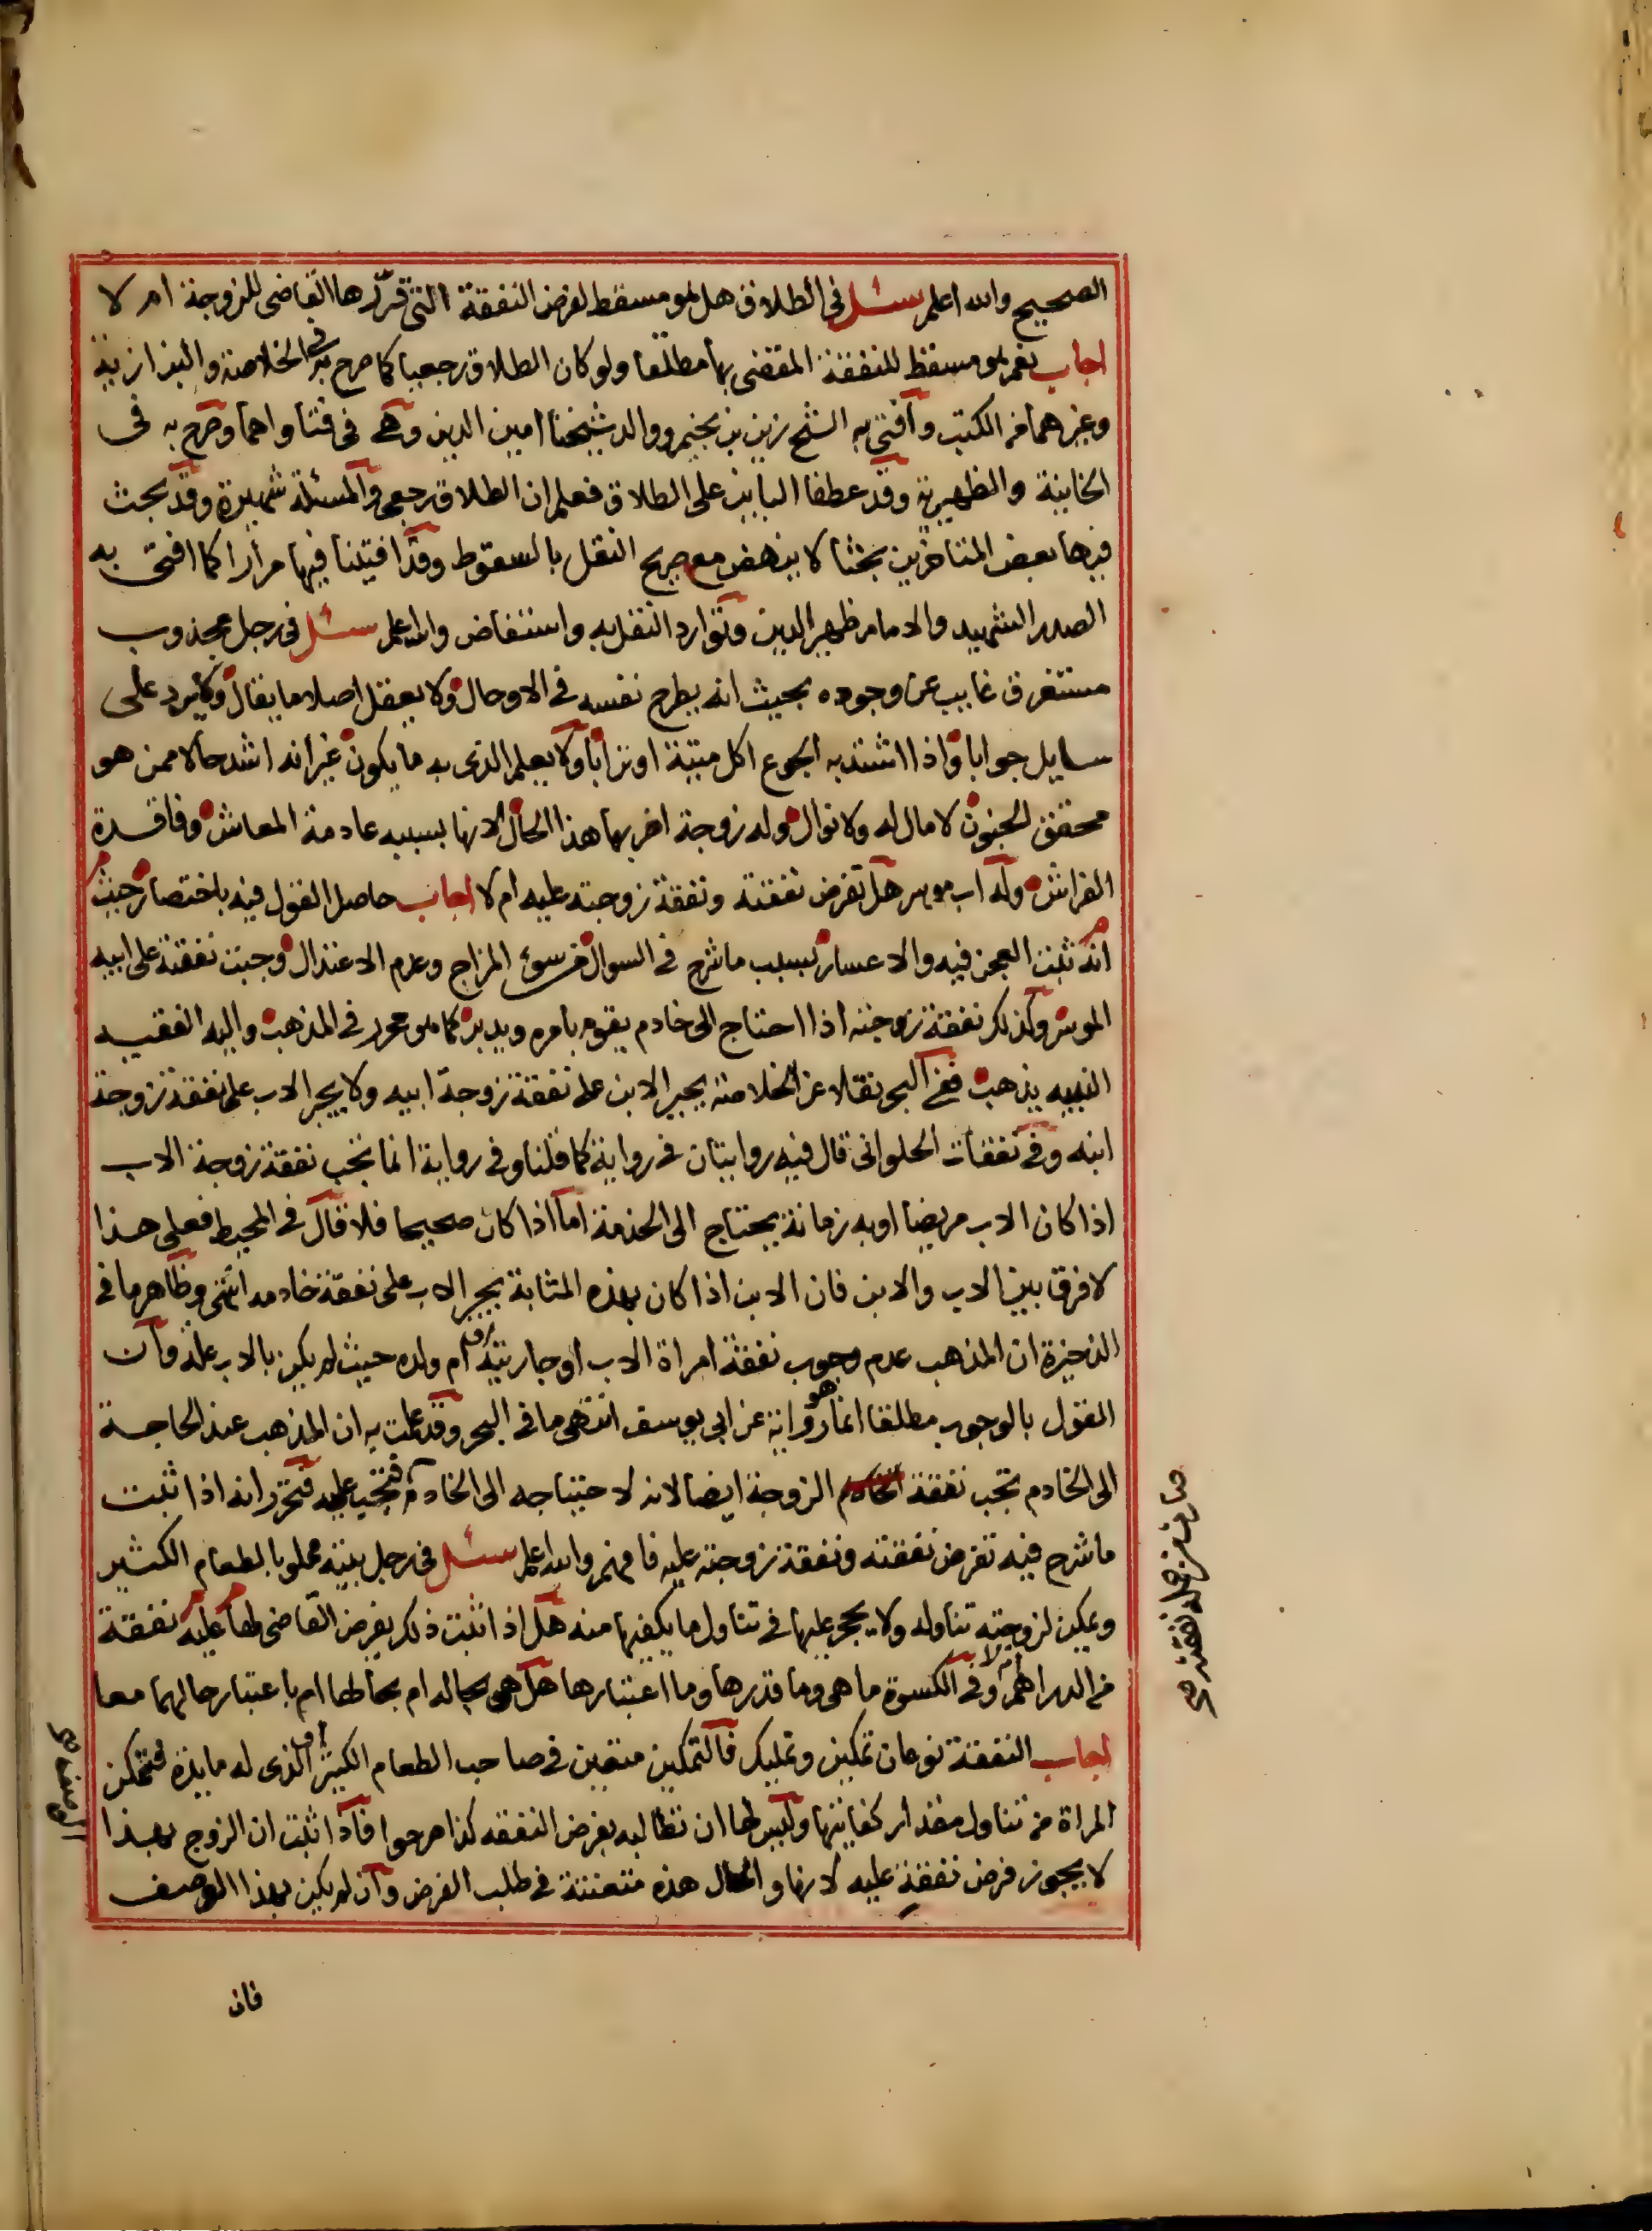 الصحيح والله اعلم سئل في الطلاق هل هو مسقط لفرض النفقة التي قرّرها القاضي للزوجة ام لا
اجاب نعم هو مسقط للنفقة المقضى بها مطلقا ولو كان الطلاق رجعيا كما صرح به في الخلاصة والبزازية
وغيرهما من الكتب وافتى به الشيخ زين بن نجيم ووالد شيخنا امين الدين وهي في فتاواهما وصرح به في
الخانية والظهيرية وقد عطفا الباين على الطلاق فعلم ان الطلاق رجعي والمسئلة شهيرة وقد بحث
فيها بعض المتاخرين بحثا لا ينهض مع صريح النقل بالسقوط وقد افتينا فيها مرارا كما افتى به
الصدر الشهيد والامام ظهير الدين وتوارد النقل به واستفاض والله اعلم سئل في رجل مجذوب
مستغرق غايب عن وجوده بحيث انه يطرح نفسه في الاوحال ولا يعقل اصلا ما يقال ولا يرد على
سايل جوابا واذا اشتد به الجوع اكل ميتة او ترابا ولا يعلم الذي به ما يكون غير انه اشد حالا ممن هو
محقق الجنون لا مال له ولا نوال وله زوجة اضر بها هذا الحال لانها بسببه عادمة المعاش وفاقدة
الفراش وله اب موسر هل تفرض نفقته ونفقة زوجته عليه ام لا اجاب حاصل القول فيه باختصار حيث
انه ثبت العجز فيه والاعسار بسبب ما شرح في السوال من سوء المزاج وعدم الاعتدال وجبت نفقته على ابيه
الموسر وكذلك نفقة زوجته اذا احتاج الى خادم يقوم بامره ويديره كما هو محرر في المذهب واليه الفقيه
النبيه يذهب ففي البحر نقلا عن الخلاصة يجبر الابن على نفقة زوجة ابيه ولا يجبر الاب على نفقة زوجة
ابنه وفي نفقات الحلواني قال فيه روايتان في رواية كما قلنا وفي رواية انما تجب نفقة زوجة الاب
اذا كان الاب مريضا او به زمانة يحتاج الى الخدمة اما اذا كان صحيحا فلا قال في المحيط فعلى هذا
لا فرق بين الاب والابن فان الابن اذا كان بهذه المثابة يجبر الاب على نفقة خادمه انتهى وظاهر ما في
الذخيرة ان المذهب عدم وجوب نفقة امراة الاب او جاريته او ام ولده حيث لم يكن بالاب علة وان
القول بالوجوب مطلقا انما هو رواية عن ابي يوسف انتهى ما في البحر وقد علمت به ان المذهب عند الحاجة
الى الخادم تجب نفقة الزوجة ايضا لانه لاحتياجه الى الخادم فتجب عليه فتحرر انه اذا ثبت
ما شرح فيه تفرض نفقته ونفقة زوجته عليه فافهم والله اعلم سئل في رجل بيته مملو بالطعام الكثير
ويمكن لزوجته تناوله ولا يحجر عليها في تناول ما يكفيها منه هل اذا ثبت ذلك يفرض القاضي لها عليه نفقة
من الدراهم ام لا وفي الكسوة ما هي وما قدرها وما اعتبارها هل هي بحاله ام بحالها ام باعتبار حالهما معا
اجاب النفقة نوعان تمكين وتمليك فالتمكين متعين في صاحب الطعام الكثير او الذي له مايدة فتتمكن
المراة من تناول مقدار كفايتها وليس لها ان تطالبه بفرض النفقه كذا صرحوا فاذا ثبت ان الزوج بهذا
لا يجوز فرض نفقة عليه لانها والحال هذه متعنتة في طلب الفرض وان لم يكن بهذا الوصف
فان